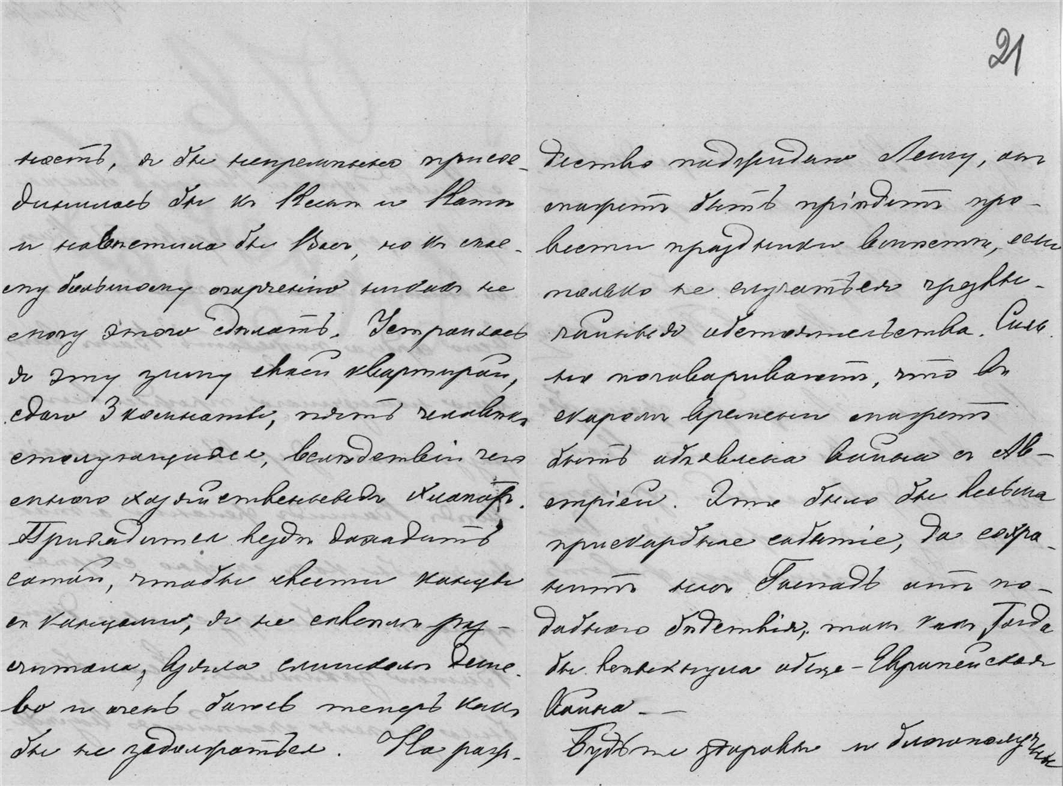 ность, я бы непременно присое-
динилась бы къ Кесан и Кати
и навестила бы Васъ, но къ мое-
му большому огорченію никакъ не
могу этого сдѣлать. Устроилась
я эту зиму своей квартирой,
сдаю 3 комнаты, пять человѣкъ
столующихся, вслѣдствіи чего
много хозяйственныхъ хлопотъ.
Приходится вездѣ доходить
самой, чтобы свести концы
съ концами, я не совсѣмъ ра-
считала, взяла слишкомъ деше-
во и очень боюсь теперь какъ
бы не задолжаться. На рож-
21
дество поджидаю Лешу, онъ
можетъ быть пріѣдетъ про-
вести праздники вмѣстѣ, если
только не случатся чрезвы-
чайныя обстоятельства. Силь
но поговариваютъ, что въ
скоромъ времени можетъ
быть объявлена война съ Ав-
стріей. Это было бы весьма
прискорбное событіе, да сохра-
нитъ насъ Господь отъ по-
добнаго бѣдствія, такъ какъ тогда
бы вспыхнула обще-Европейская
война. —
Будьте здоровы и благополучны